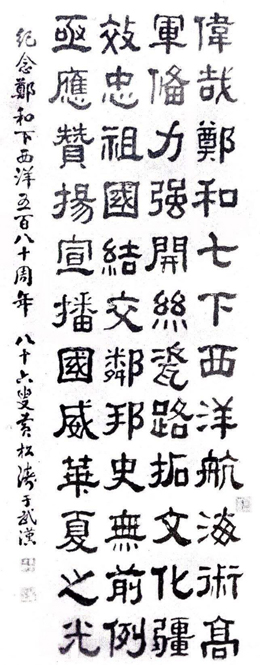 偉哉鄭和七下西洋航海術高
軍備力强開絲瓷路拓文化疆
效忠祖國結交鄰邦史無前例
亟應贊揚宣播國威華夏之光
紀念鄭和下西洋五百八十周年 八十六叟黄松濤于武漢